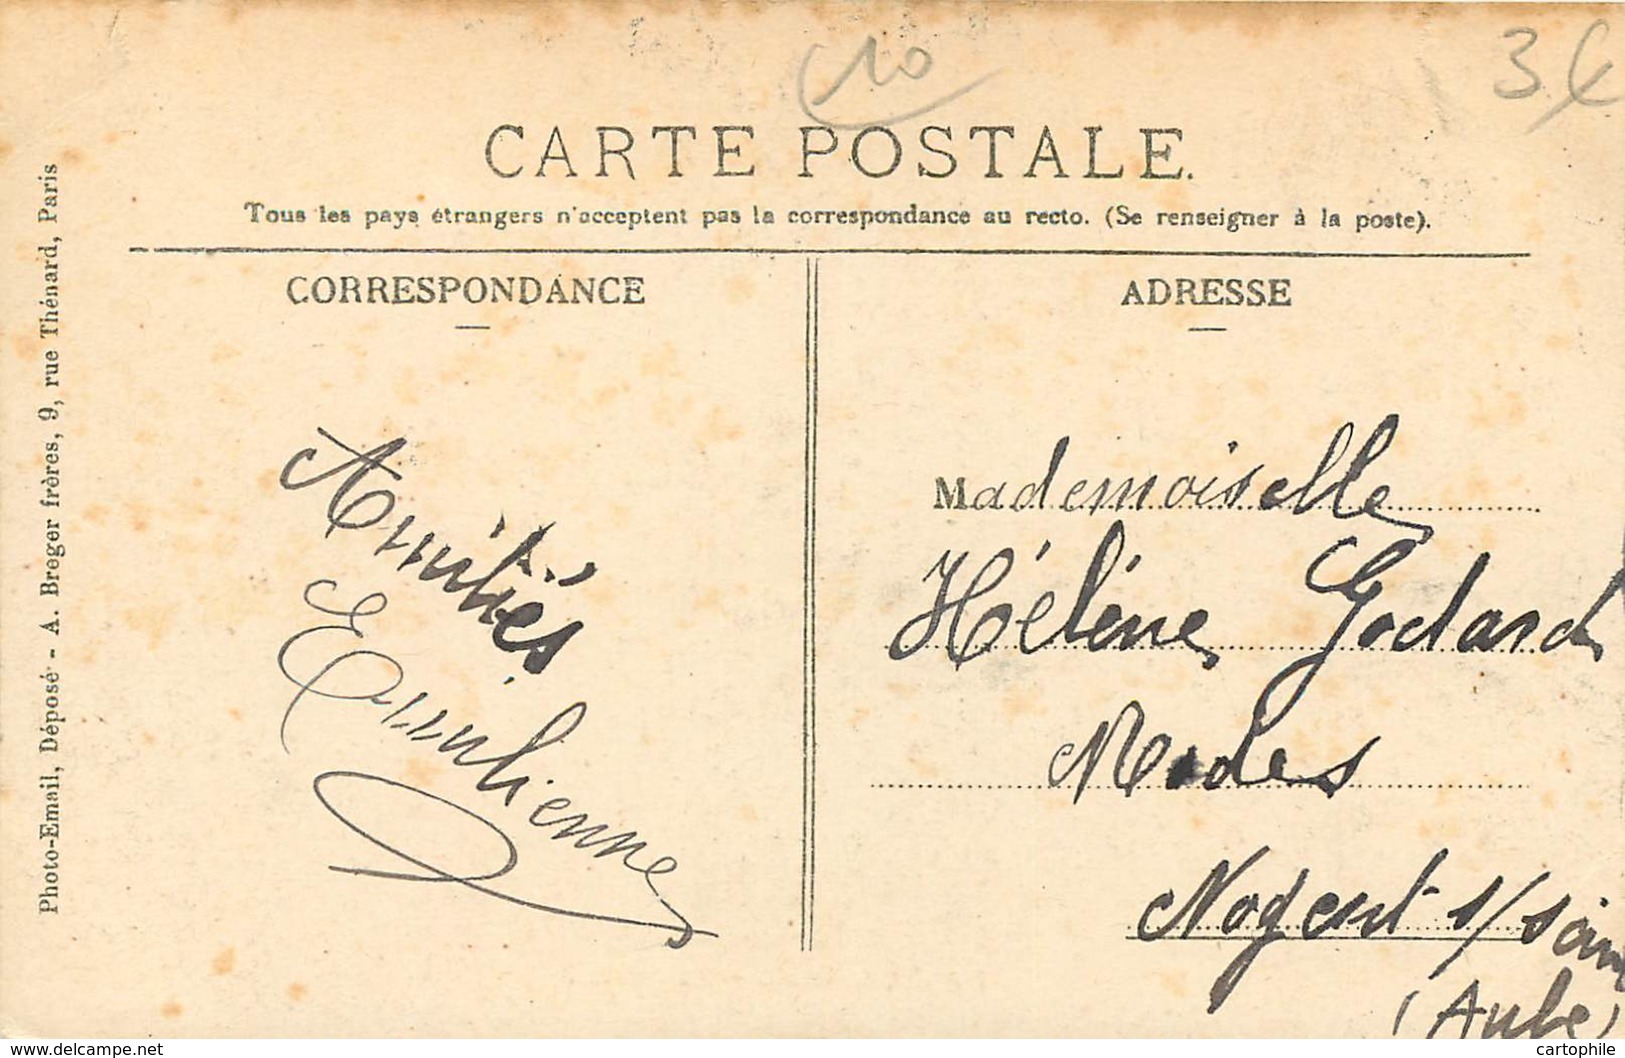 10
3€
CARTE POSTALE.
Tous les pays étrangers n'acceptent pas la correspondance au recto. (Se renseigner à la poste).
CORRESPONDANCE
ADRESSE
Photo-Email, Déposé - A. Breger frères, 9, rue Thénard, Paris
Amitiés
Emilienne
Mademoiselle
Hélène Godard
Modes
Nogent s/ Seine
(Aube)
www.delcampe.net
cartophile